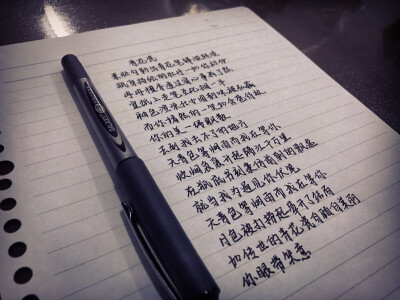 青花瓷
素胚勾勒出青花笔锋浓转淡
瓶身描绘的牡丹一如你初妆
冉冉檀香透过窗心事我了然
宣纸上走笔至此搁一半
釉色渲染仕女图韵味被私藏
而你嫣然的一笑如含苞待放
你的美一缕飘散
去到我去不了的地方
天青色等烟雨而我在等你
炊烟袅袅升起隔江千万里
在瓶底书刻隶仿前朝的飘逸
就当我为遇见你伏笔
天青色等烟雨而我在等你
月色被打捞起晕开了结局
如传世的青花瓷自顾自美丽
你眼带笑意